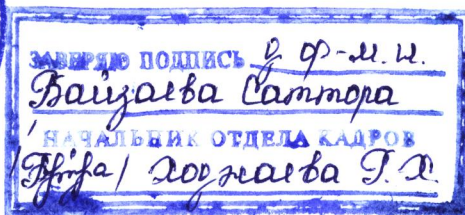 ЗАВЕРЯЮ ПОДПИСЬ д ф-м.н.
Байзаева Саттора
НАЧАЛЬНИК ОТДЕЛА КАДРОВ
Ходжаева Г. Х.